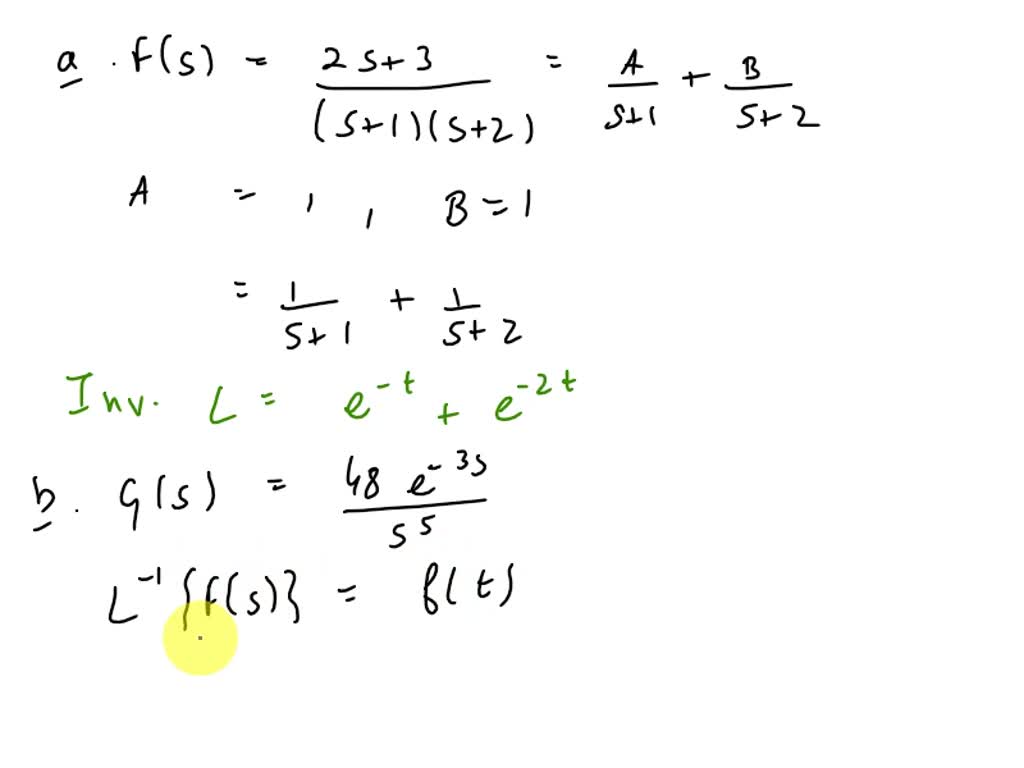 a. F(s) = 2s+3 / (s+1)(s+2) = A / s+1 + B / s+2
A = 1, B = 1
= 1 / s+1 + 1 / s+2
Inv. L = e^-t + e^-2t
b. G(s) = 48 e^-3s / s^5
L^-1 {F(s)} = f(t)